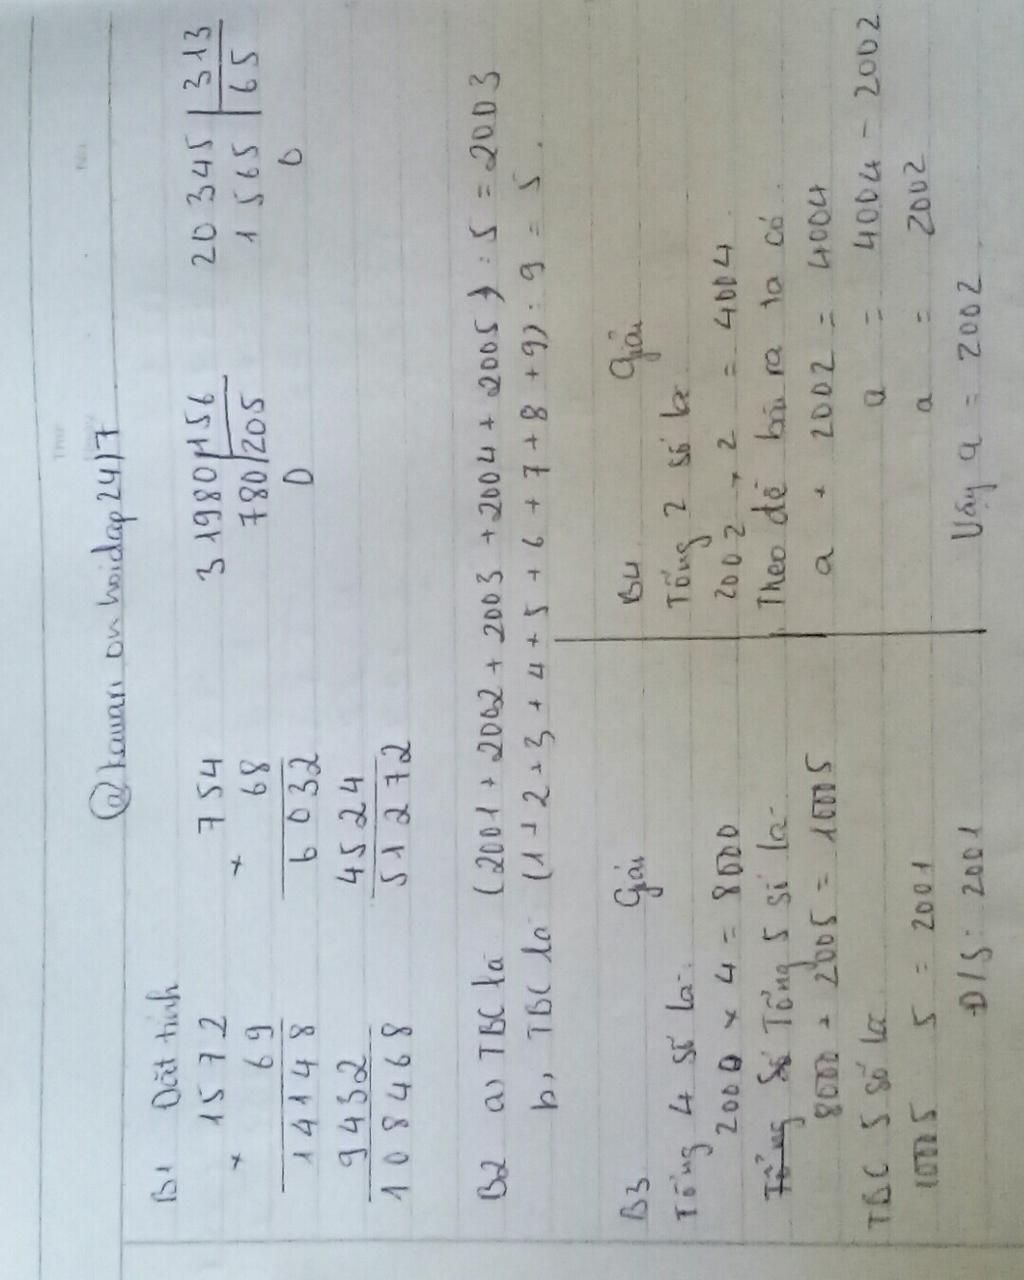 @kawari on hoidap247
B1 Đăt tính
× 1572 × 754 31980 156 20345 313
69 68 780 205 1565 65
14148 6032 0 0
9432 4524
108468 51272
B2 a, TBC là (2001 + 2002 + 2003 + 2004 + 2005) : 5 = 2003
b, TBC là (1 + 2 + 3 + 4 + 5 + 6 + 7 + 8 + 9) : 9 = 5.
B3 Giải
Tổng 4 số là:
2000 × 4 = 8000
Tổng 5 số là:
8000 + 2005 = 10005
TBC 5 số là
10005 5 = 2001
Đ/S: 2001
B4 Giải
Tổng 2 số là
2002 × 2 = 4004
Theo đề bài ra ta có
a + 2002 = 4004
a = 4004 - 2002
a = 2002
Vậy a = 2002